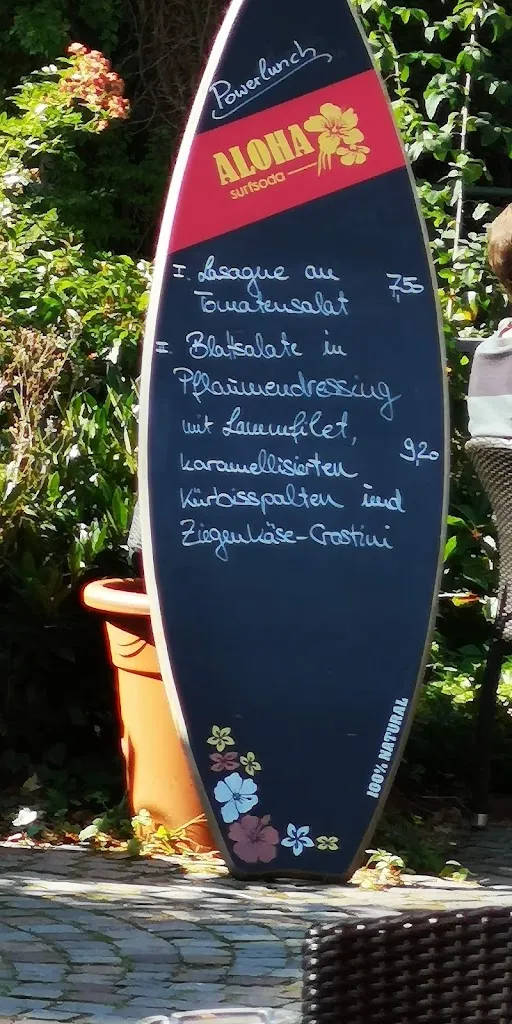 Powerlunch
ALOHA
surfsoda
I. Lasagne an 7,55
Tomatensalat
II. Blattsalate in
Pflaumendressing
mit Lammfilet,
karamellisierten 9,20
Kürbisspalten und
Ziegenkäse-Crostini
100% NATURAL